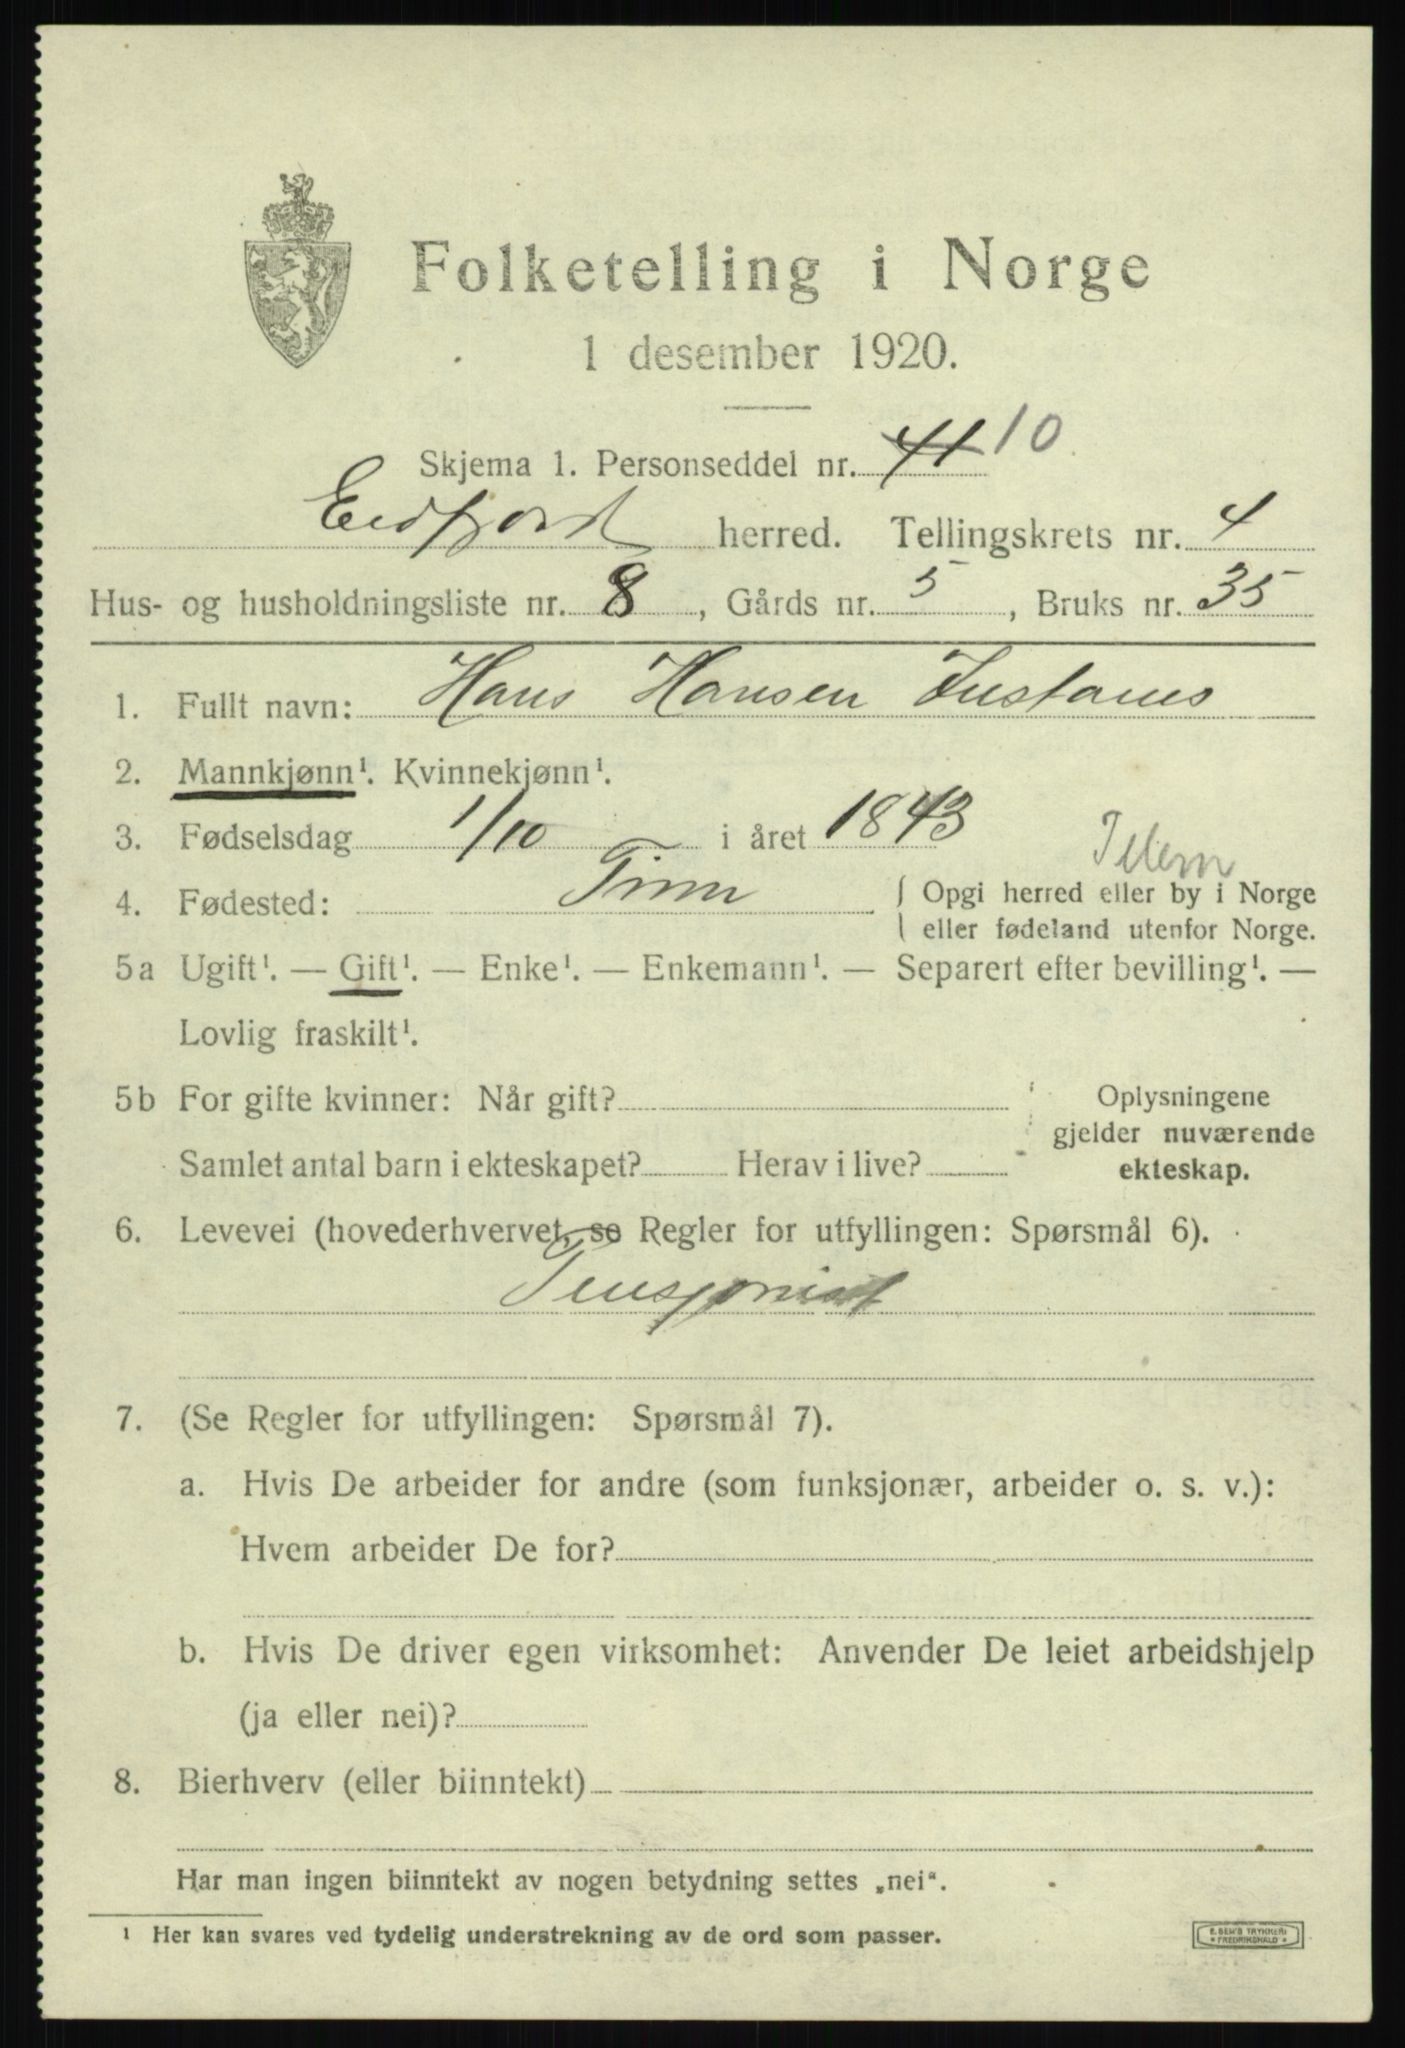 Folketelling i Norge
1 desember 1920.
Skjema 1. Personseddel nr. 41 10
Eidfjord herred. Tellingskrets nr. 4
Hus- og husholdningsliste nr. 8, Gårds nr. 5, Bruks nr. 35
1. Fullt navn: Hans Hansen
2. Mannkjønn¹. Kvinnekjønn¹.
3. Fødselsdag 1/10 i året 1843
Telem
4. Fødested: Tinn { Opgi herred eller by i Norge
eller fødeland utenfor Norge.
5a Ugift¹. — Gift¹. — Enke¹. — Enkemann¹. — Separert efter bevilling¹. —
Lovlig fraskilt¹.
5b For gifte kvinner: Når gift?
Samlet antal barn i ekteskapet? Herav i live?
Oplysningene
gjelder nuværende
ekteskap.
6. Levevei (hovederhvervet, se Regler for utfyllingen: Spørsmål 6).
Pensjonist
7. (Se Regler for utfyllingen: Spørsmål 7).
a. Hvis De arbeider for andre (som funksjonær, arbeider o. s. v.):
Hvem arbeider De for?
b. Hvis De driver egen virksomhet: Anvender De leiet arbeidshjelp
(ja eller nei)?
8. Bierhverv (eller biinntekt)
Har man ingen biinntekt av nogen betydning settes „nei“.
¹ Her kan svares ved tydelig understrekning av de ord som passer.
E. SEM'S TRYKKERI
FREDRIKSHALD